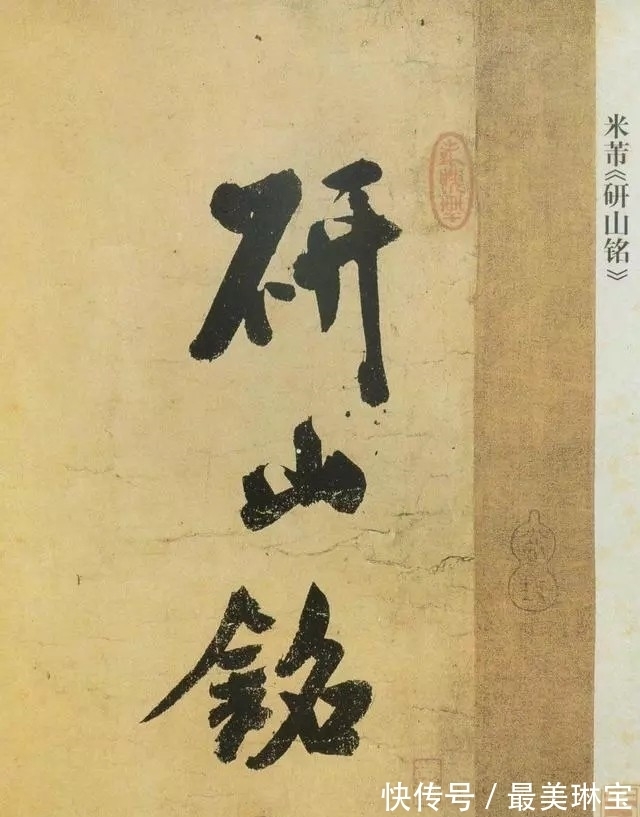 米芾《研山铭》
研山銘
快传号/最美琳宝